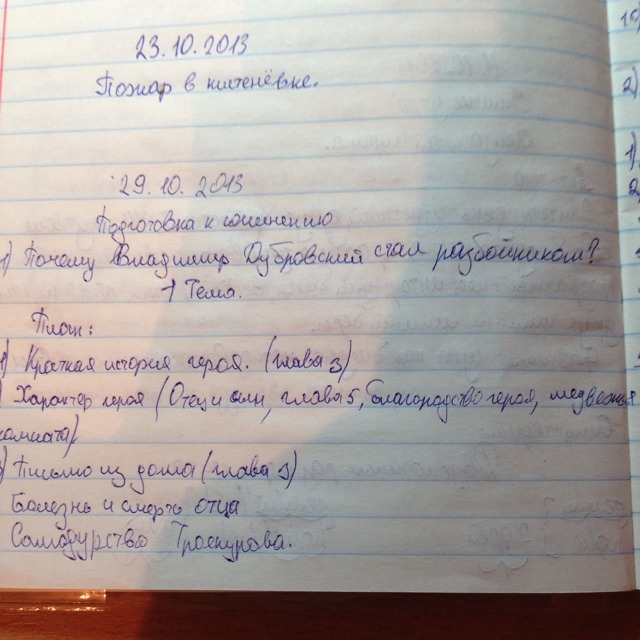 23.10.2013
Пожар в кистенёвке.
29.10.2013
Подготовка к сочинению
1) Почему Владимир Дубровский стал разбойником?
1 Тема.
План:
1) Краткая история героя. (глава 3)
) Характер героя (Отец и сын, глава 5, благородство героя, медвежья
комната)
) Письмо из дома (глава 3)
Болезнь и смерть отца
Самодурство Троекурова.
10)
2)
1)
2